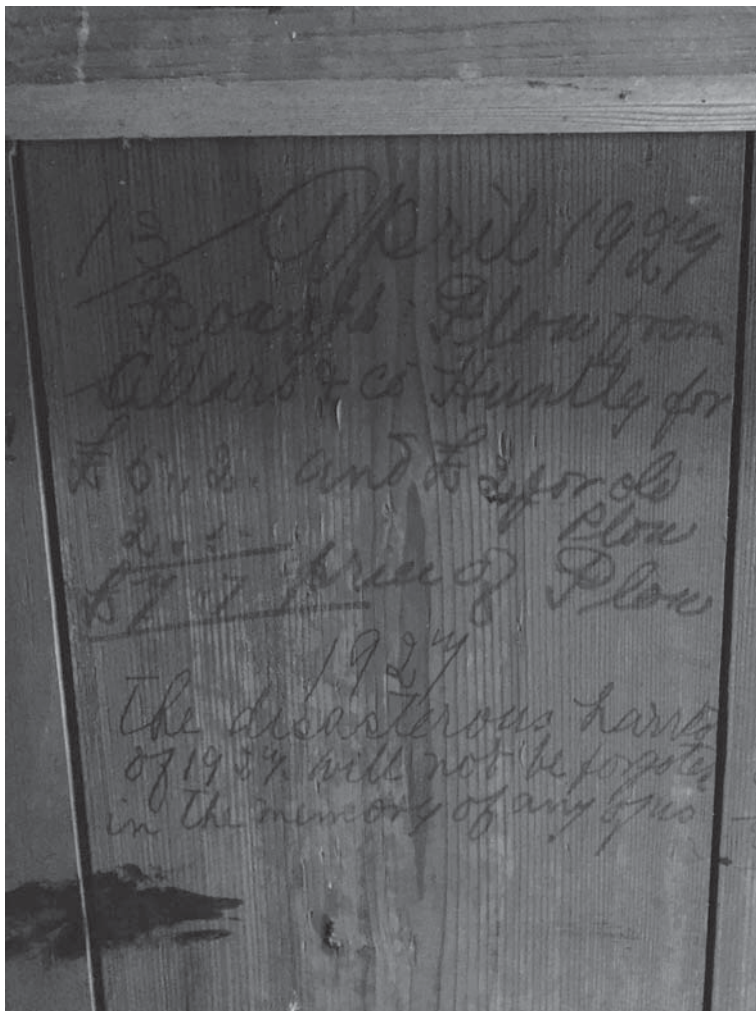 13 / April 1927
Bought Plow from
Sellars & co Huntly for
£ 5 . 2 . and £ 2 for old
2 . 5 Plow
£7 . 7 price of Plow
1927
The disasterous harvest
of 1927 will not be forgoten
in the memory of any of us